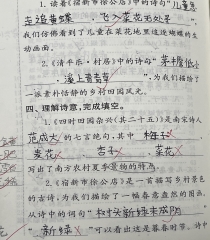 1. 读着《宿新市徐公店》中的诗句“儿童急
走追黄蝶，飞入菜花无处寻”，
我们仿佛看到了儿童在菜花地里追逐蝴蝶的生
动画面。
2.《清平乐·村居》中的诗句“茅檐低小
，溪上青青草”，为我们描绘了
一派素朴恬静的乡村田园风光。
四、理解诗意，完成填空。
1.《四时田园杂兴(其二十五)》是南宋诗人
范成大的七言绝句，其中 梅子
麦花 杏子 菜花
写出了南方农村夏季景物的特点
2.《宿新市徐公店》是一首描写乡村景色
的古诗，为我们描绘了一幅春意盎然的图画，
从诗中的词句“树头新绿未成阴”
“新绿”可以看出这是暮春时节。诗中